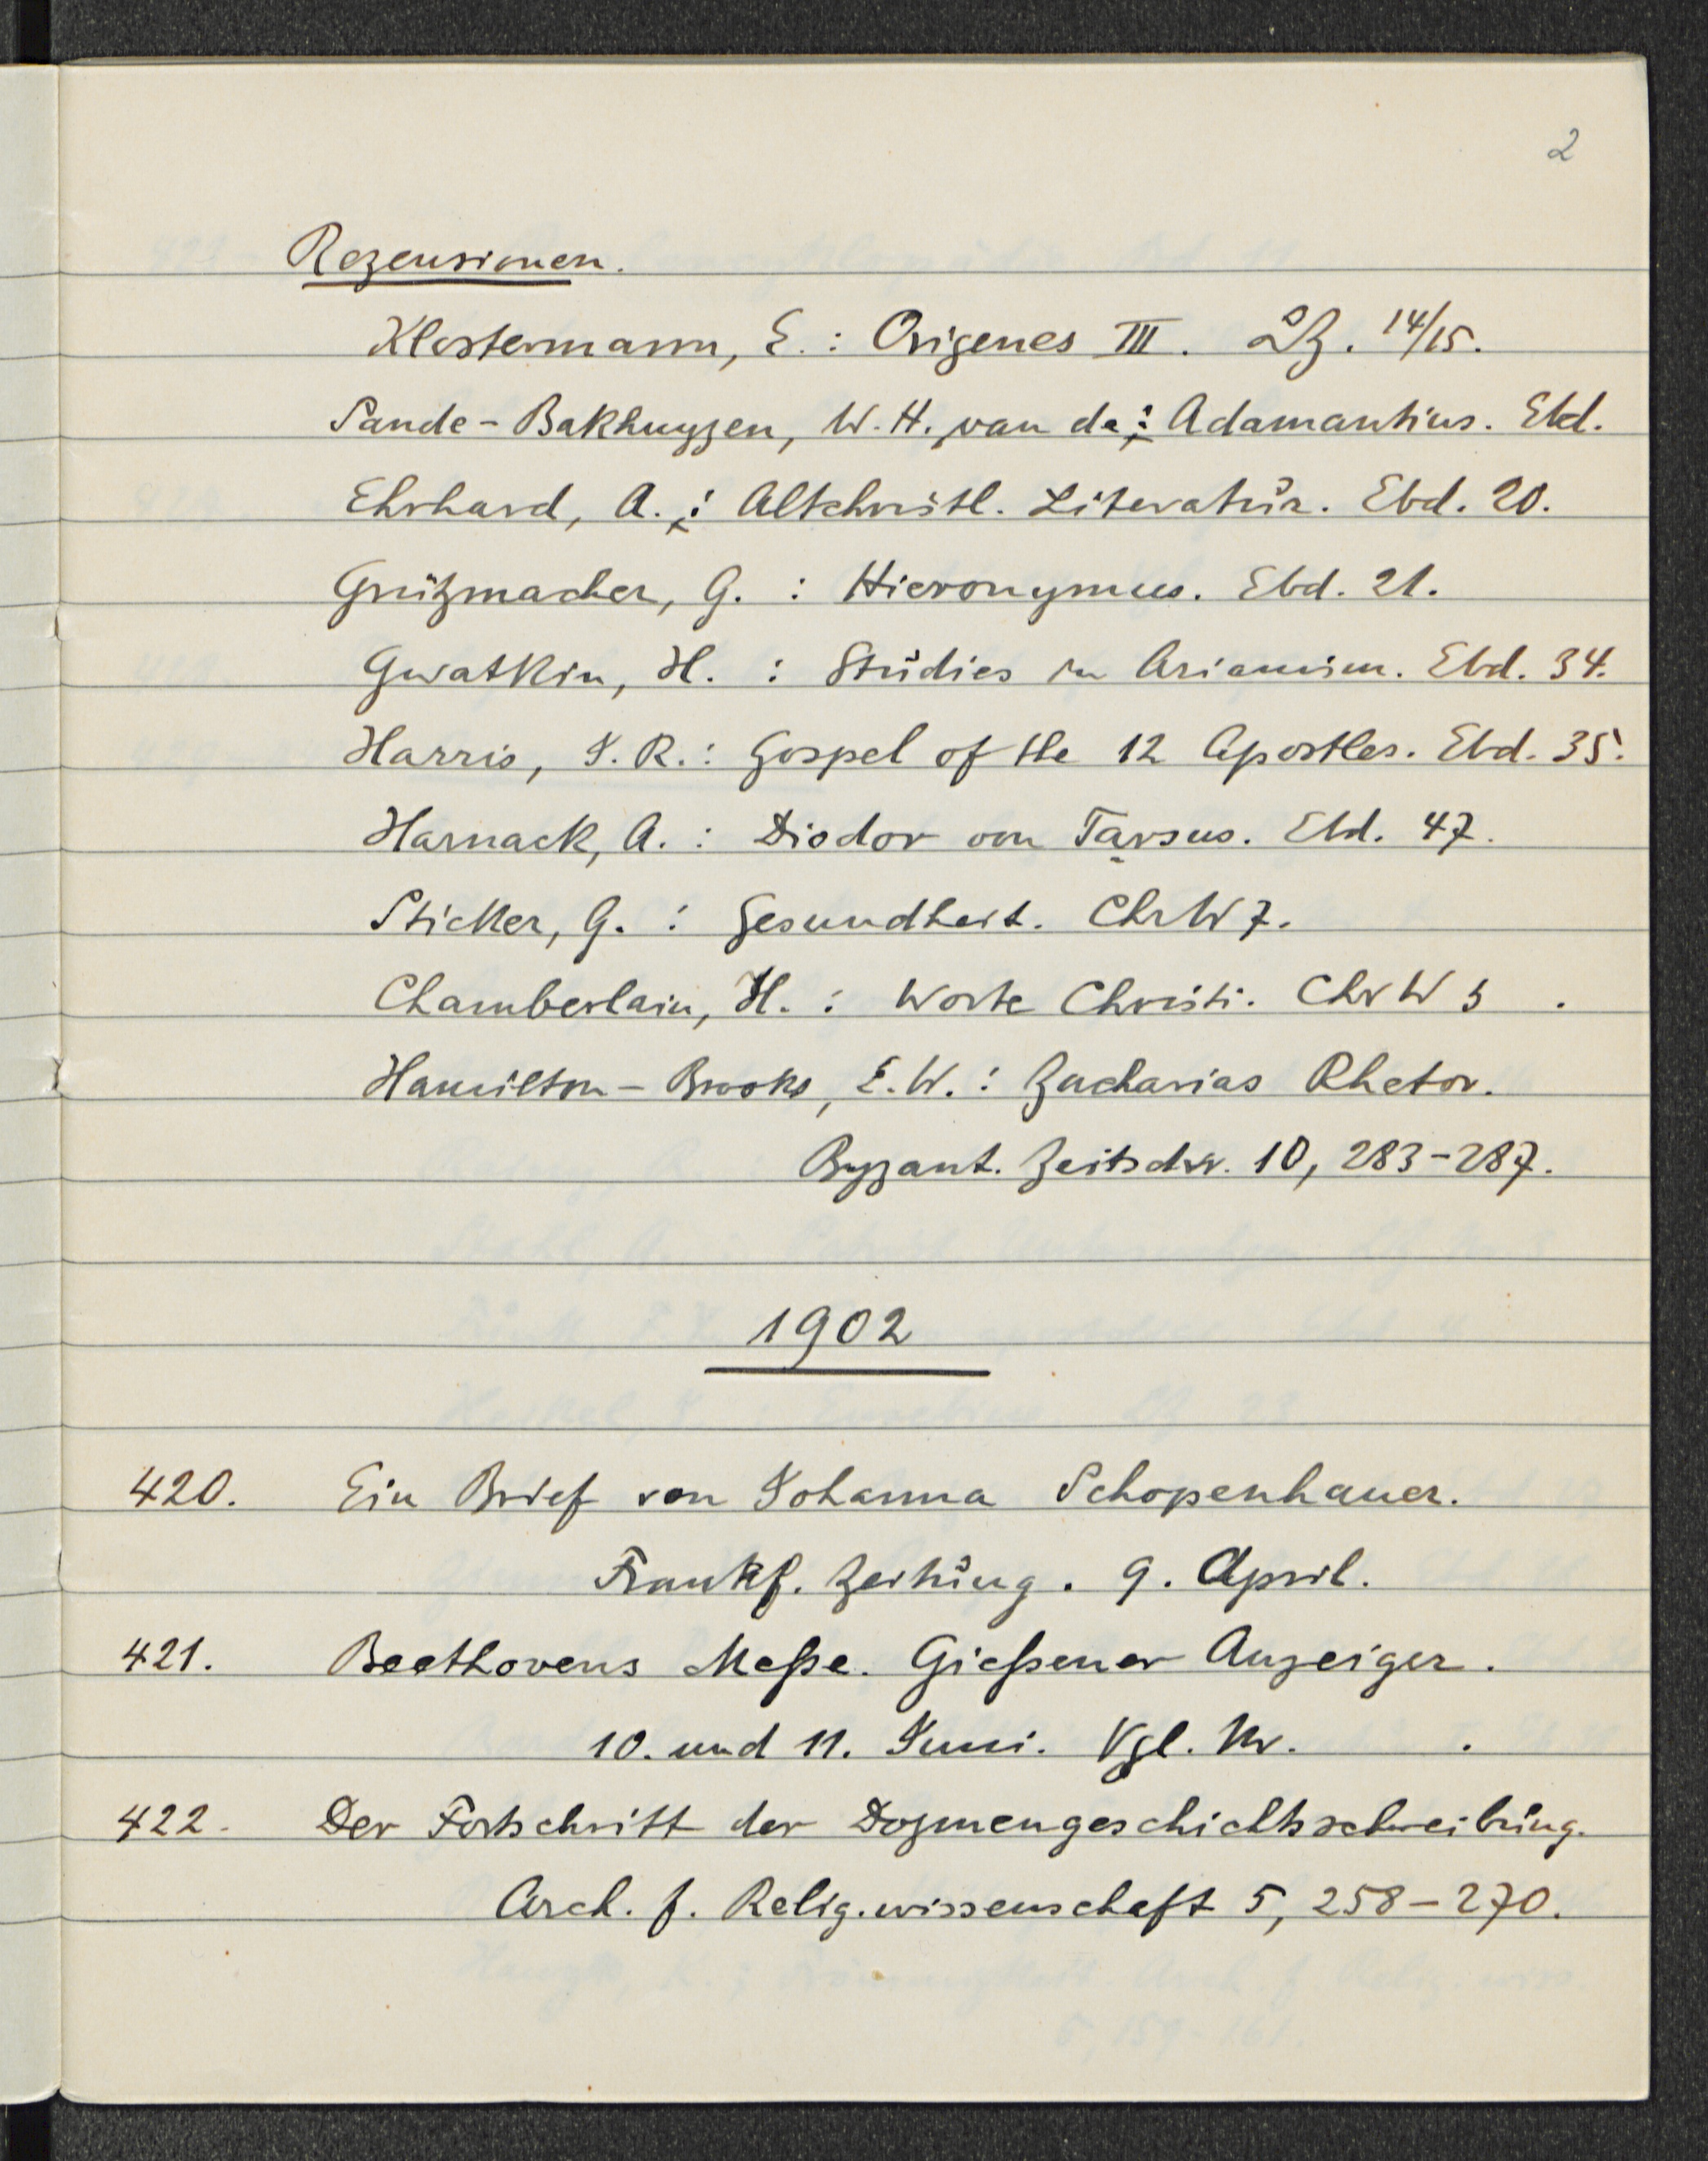 2
Rezensionen.
Klostermann, E.: Origenes III. LZ. 14/15.
Sande-Bakhuyzen, W. H. van de: Adamantius. Ebd.
Ehrhard, A.: Altchristl. Literatur. Ebd. 20.
Grützmacher, G. : Hieronymus. Ebd. 21.
Gwatkin, H. : Studies in Arianism. Ebd. 34.
Harris, J. R.: Gospel of the 12 Apostles. Ebd. 35.
Harnack, A. : Diodor von Tarsus. Ebd. 47.
Sticker, G. : Gesundheit. ChrW 7.
Chamberlain, H. : Worte Christi. ChrW 5 .
Hamilton - Brooks, E. W. : Zacharias Rhetor.
Byzant. Zeitschr. 10, 283-287.
1902
420. Ein Brief von Johanna Schopenhauer.
Frankf. Zeitung. 9. April.
421. Beethovens Meße. Gießener Anzeiger.
10. und 11. Juni. Vgl. Nr. .
422. Der Fortschritt der Dogmengeschichtsschreibung.
Arch. f. Relig.wissenschaft 5, 258-270.